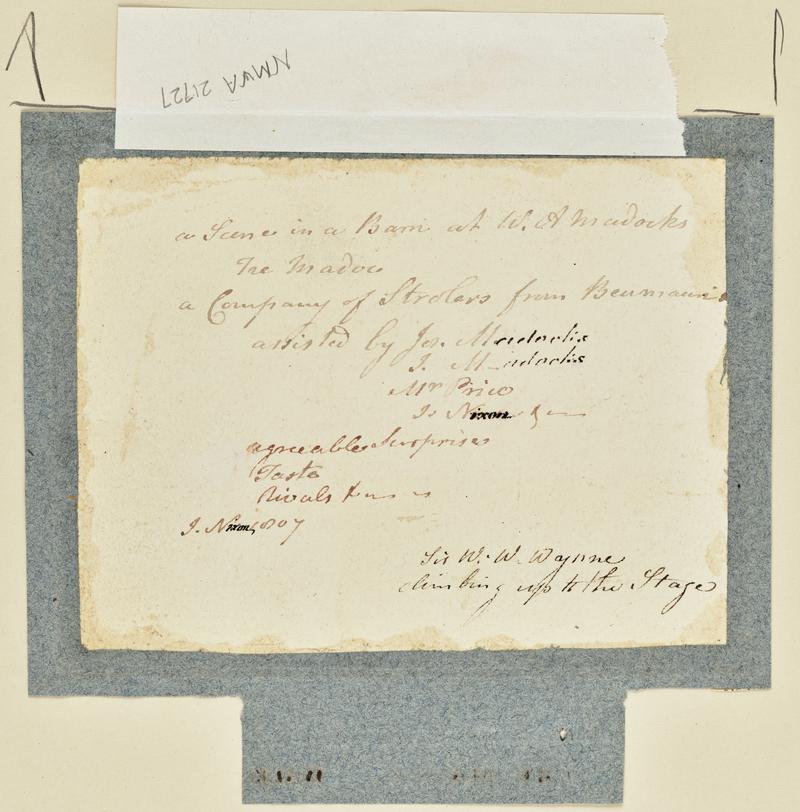 NMWA 21727
a Scene in a Barn at W. A Madocks
Tre Madoc
a Company of Strolers from Beumauris
assisted by Jos. Madocks
J. Madocks
Mr Price
Js Nixon &
agreeable Surprise
Taste
Rivals
J. Nixon 1807
Sir W. W. Wynne
climbing up to the Stage